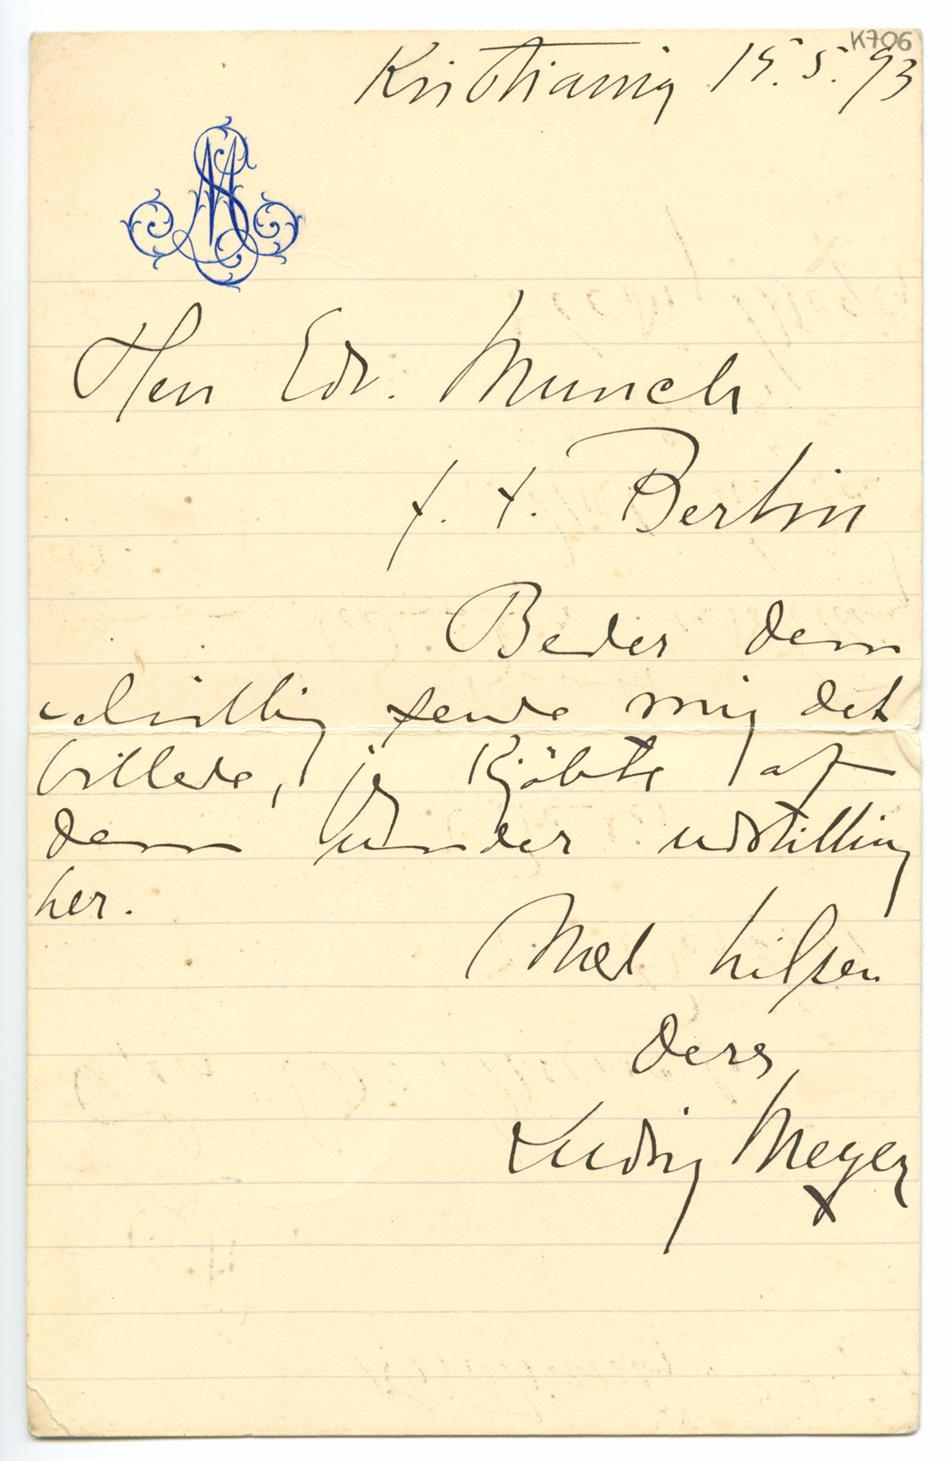 K706
Kristiania 15.5.93
Herr Edv. Munch
f. t. Berlin
Beder dem
velvilligt sende mig det
billede, jeg kjøbte af
dem under udstilling
her.
Med hilsen
Deres
Ludvig Meyer